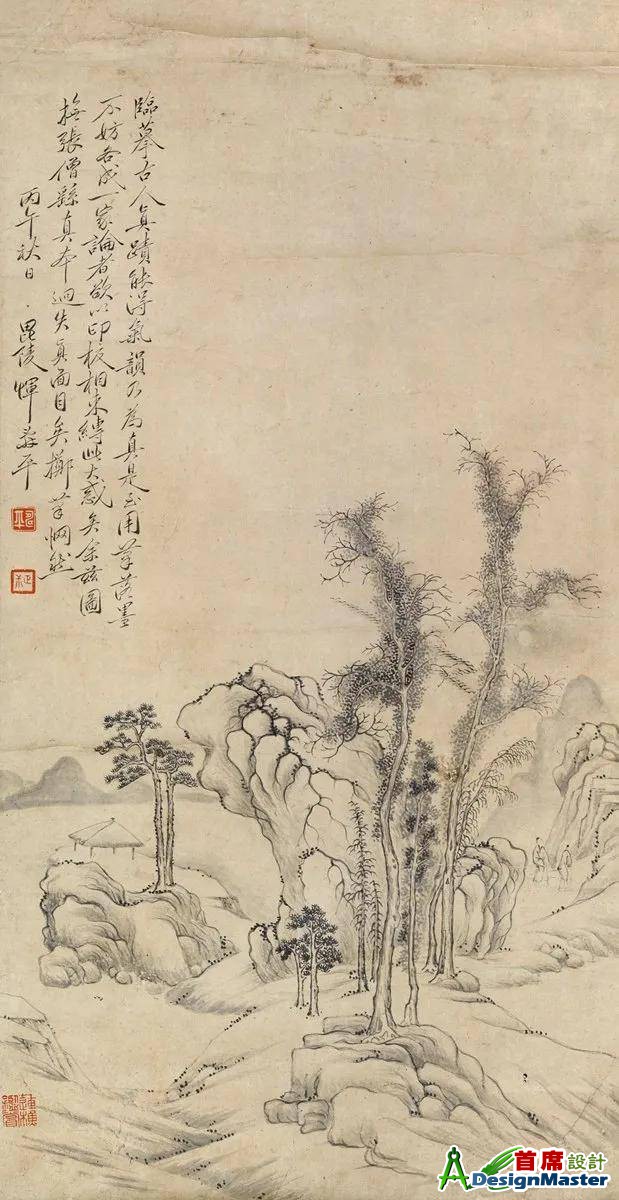 臨摹古人真蹟能得氣韻乃為真是至用筆落墨
不妨各成一家論者欲以印板相束縛此大惑矣余茲圖
撫張僧繇真本迥失真面目矣擲筆惘然
丙午秋日毘陵惲壽平
首席設計
ADesignMaster